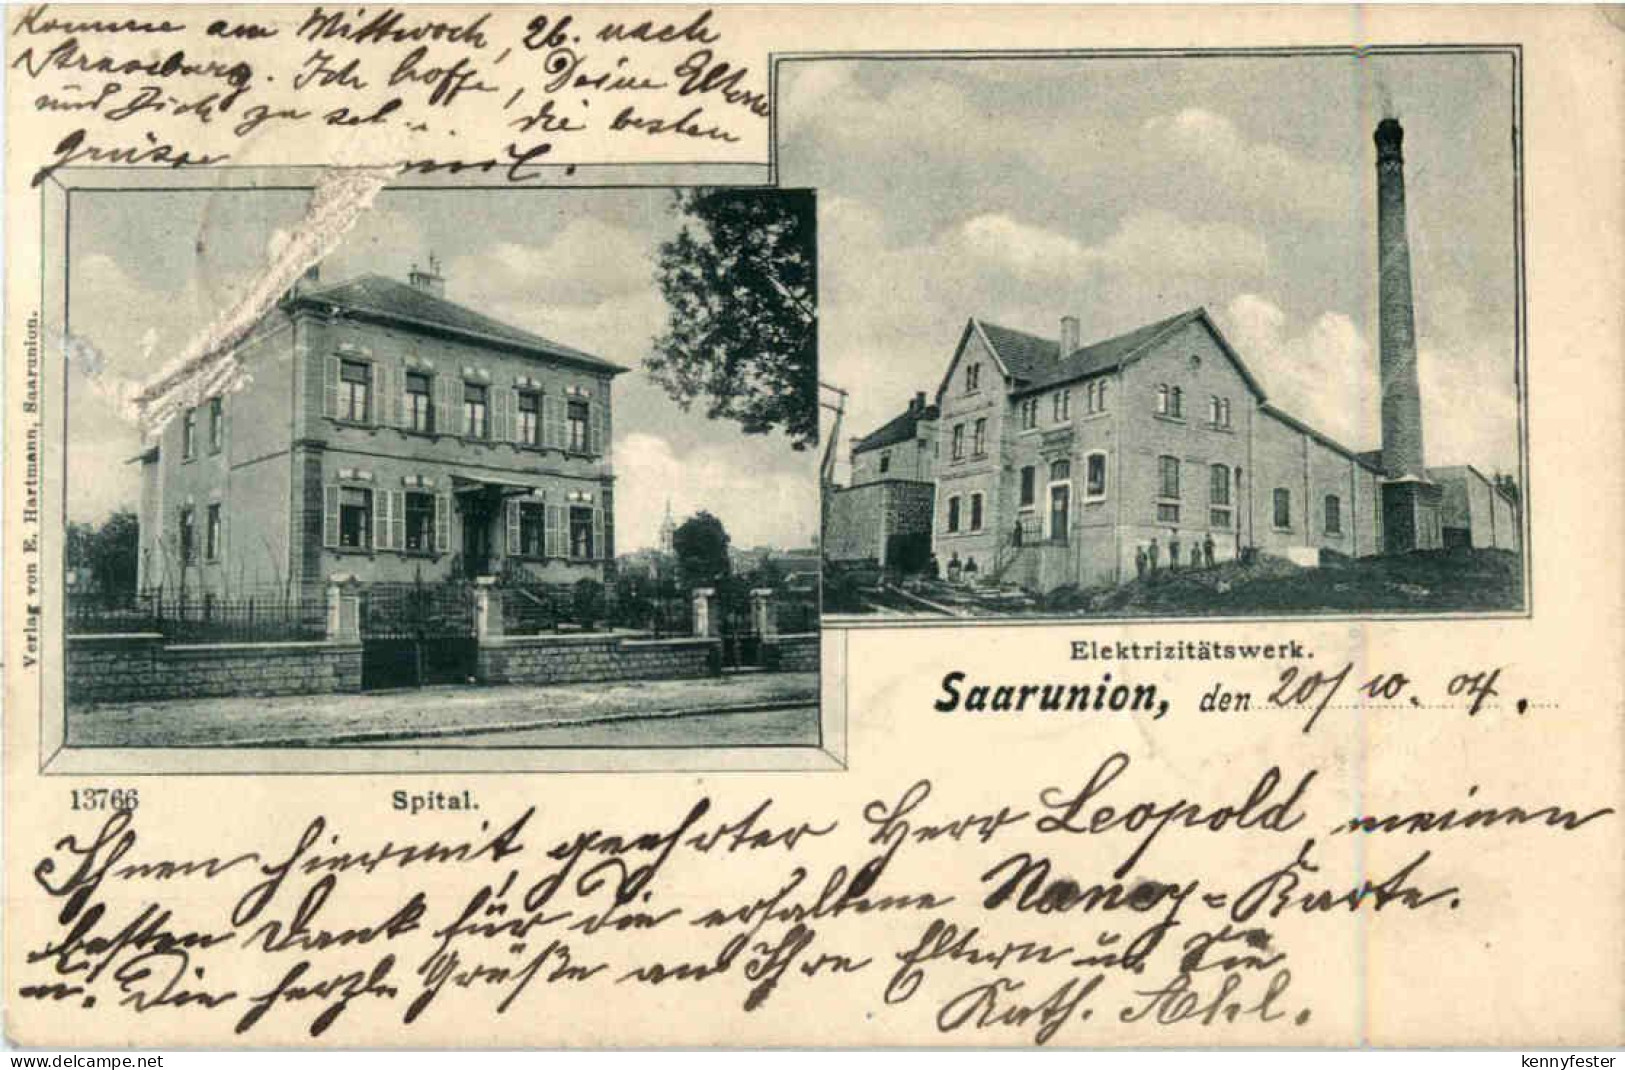 Komme am Mittwoch, 26. nach
Strassburg. Ich hoffe, Deine Eltern
und Dich zu seh... die besten
Grüsse
Verlag von E. Hartmann, Saarunion.
Elektrizitätswerk.
Saarunion, den 20/10. 04.
13766 Spital.
Ihnen hiermit, geehrter Herr Leopold, meinen
besten Dank für die erhaltene Nancy-Karte.
u. die herzl. Grüße an Ihre Eltern u. Sie
Kath. Ahl.
www.delcampe.net
kennyfester